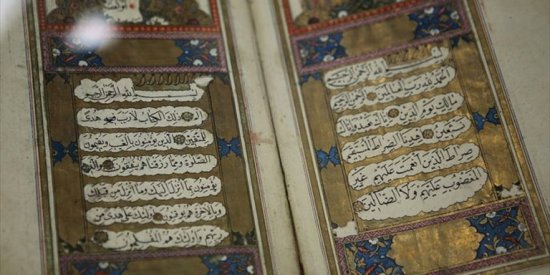 بسم الله الرحمن الرحيم
الحمد لله رب العالمين
مالك يوم الدين اياك نعبد واياك
نستعين اهدنا الصراط المستقيم
صراط الذين انعمت عليهم غير
المغضوب عليهم ولا الضالين
بسم الله الرحمن الرحيم
الم ذلك الكتاب لا ريب فيه هدى
للمتقين الذين يؤمنون بالغيب ويقيمون
الصلوة ومما رزقناهم ينفقون والذين
يؤمنون بما انزل اليك وما انزل من قبلك
وبالاخرة هم يوقنون اولئك على هدى من
ربهم واولئك هم المفلحون